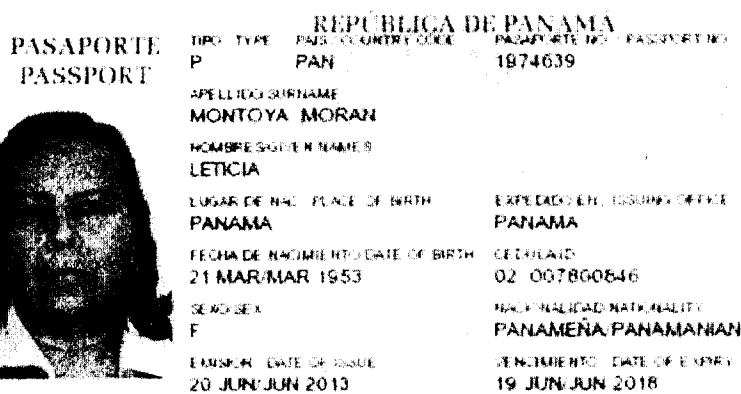 REPÚBLICA DE PANAMÁ
PASAPORTE
PASSPORT
TIPO TYPE PAIS COUNTRY CODE PASAPORTE NO PASSPORT NO
P PAN 1974639
APELLIDO SURNAME
MONTOYA MORAN
NOMBRES GIVEN NAMES
LETICIA
LUGAR DE NAC PLACE OF BIRTH EXPEDIDO EN ISSUING OFFICE
PANAMA PANAMA
FECHA DE NACIMIENTO DATE OF BIRTH CEDULA ID
21 MAR/MAR 1953 02 007800846
SEXO SEX NACIONALIDAD NATIONALITY
F PANAMEÑA/PANAMANIAN
EMISION DATE OF ISSUE VENCIMIENTO DATE OF EXPIRY
20 JUN/JUN 2013 19 JUN/JUN 2018